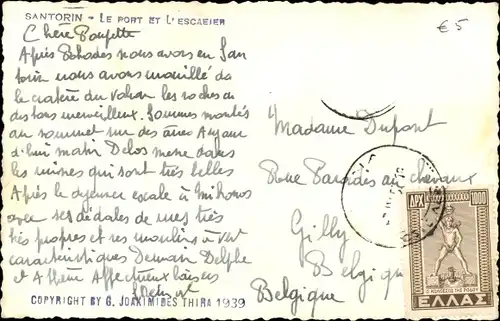 SANTORIN - LE PORT ET L'ESCALIER
€5
Chère Poupette
Après Rhodes nous avons eu San
torin nous avons mouillé ds
le cratère du volcan les roches ont
des tons merveilleux. Sommes montés
au sommet sur des ânes Aujour
d'hui matin Delos dans
les ruines qui sont très belles
Après le déjeuner escale à Mikonos
avec ses dédales de rues très
très propres et ses moulins à vent
caractéristiques Demain Delphe
et Athène Affectueux baisers
COPYRIGHT BY G. JOAKIMIDES THIRA 1939
Madame Dupont
Rue aux chevaux
Gilly
Belgique
Belgique
ΔΡΧ 1000
Ο ΚΟΛΟΣΣΟΣ ΤΗΣ ΡΟΔΟΥ
ΕΛΛΑΣ